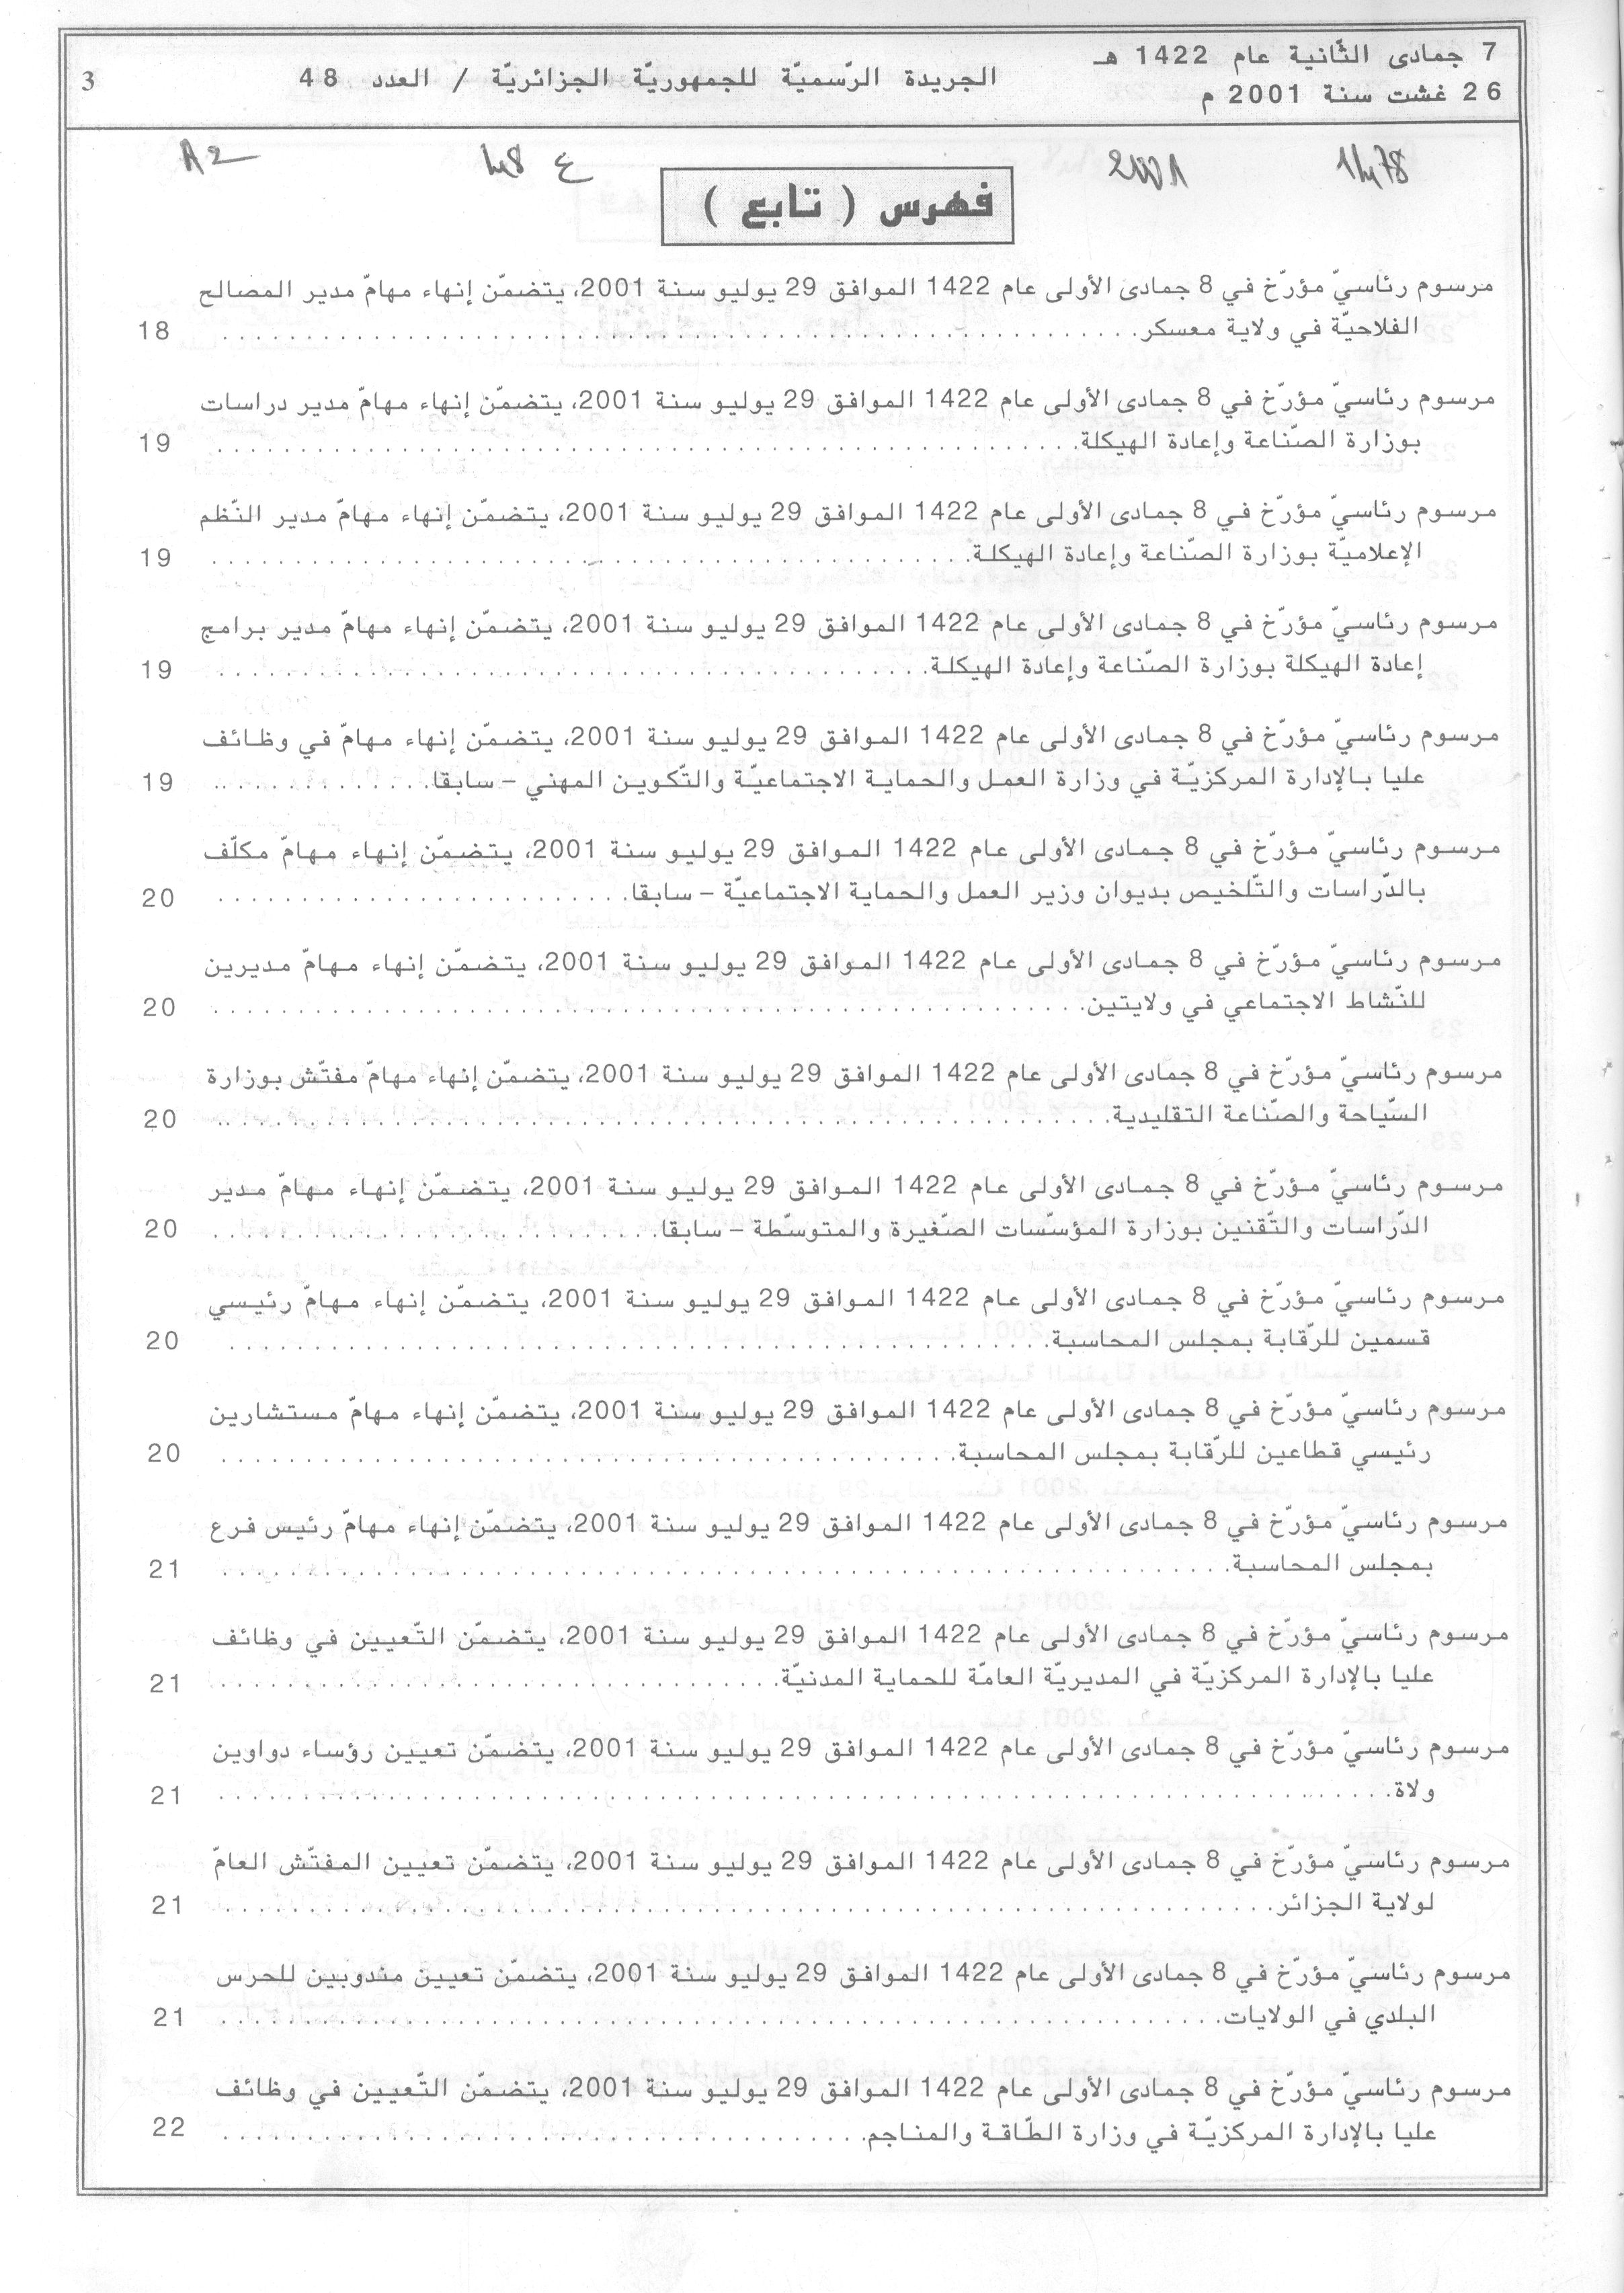 7 جمادى الثّانية عام 1422 هـ
26 غشت سنة 2001 م
الجريدة الرّسميّة للجمهوريّة الجزائريّة / العدد 48
3
1478
2001
ع 48
A2
فهرس ( تابع )
مرسوم رئاسيّ مؤرّخ في 8 جمادى الأولى عام 1422 الموافق 29 يوليو سنة 2001، يتضمّن إنهاء مهامّ مدير المصالح
الفلاحيّة في ولاية معسكر. 18
مرسوم رئاسيّ مؤرّخ في 8 جمادى الأولى عام 1422 الموافق 29 يوليو سنة 2001، يتضمّن إنهاء مهامّ مدير دراسات
بوزارة الصّناعة وإعادة الهيكلة. 19
مرسوم رئاسيّ مؤرّخ في 8 جمادى الأولى عام 1422 الموافق 29 يوليو سنة 2001، يتضمّن إنهاء مهامّ مدير النّظم
الإعلاميّة بوزارة الصّناعة وإعادة الهيكلة. 19
مرسوم رئاسيّ مؤرّخ في 8 جمادى الأولى عام 1422 الموافق 29 يوليو سنة 2001، يتضمّن إنهاء مهامّ مدير برامج
إعادة الهيكلة بوزارة الصّناعة وإعادة الهيكلة. 19
مرسوم رئاسيّ مؤرّخ في 8 جمادى الأولى عام 1422 الموافق 29 يوليو سنة 2001، يتضمّن إنهاء مهامّ في وظائف
عليا بالإدارة المركزيّة في وزارة العمل والحماية الاجتماعيّة والتّكوين المهني – سابقا. 19
مرسوم رئاسيّ مؤرّخ في 8 جمادى الأولى عام 1422 الموافق 29 يوليو سنة 2001، يتضمّن إنهاء مهامّ مكلّف
بالدّراسات والتّلخيص بديوان وزير العمل والحماية الاجتماعيّة – سابقا. 20
مرسوم رئاسيّ مؤرّخ في 8 جمادى الأولى عام 1422 الموافق 29 يوليو سنة 2001، يتضمّن إنهاء مهامّ مديرين
للنّشاط الاجتماعي في ولايتين. 20
مرسوم رئاسيّ مؤرّخ في 8 جمادى الأولى عام 1422 الموافق 29 يوليو سنة 2001، يتضمّن إنهاء مهامّ مفتّش بوزارة
السّياحة والصّناعة التقليدية. 20
مرسوم رئاسيّ مؤرّخ في 8 جمادى الأولى عام 1422 الموافق 29 يوليو سنة 2001، يتضمّن إنهاء مهامّ مدير
الدّراسات والتّقنين بوزارة المؤسّسات الصّغيرة والمتوسّطة – سابقا. 20
مرسوم رئاسيّ مؤرّخ في 8 جمادى الأولى عام 1422 الموافق 29 يوليو سنة 2001، يتضمّن إنهاء مهامّ رئيسي
قسمين للرّقابة بمجلس المحاسبة. 20
مرسوم رئاسيّ مؤرّخ في 8 جمادى الأولى عام 1422 الموافق 29 يوليو سنة 2001، يتضمّن إنهاء مهامّ مستشارين
رئيسي قطاعين للرّقابة بمجلس المحاسبة. 20
مرسوم رئاسيّ مؤرّخ في 8 جمادى الأولى عام 1422 الموافق 29 يوليو سنة 2001، يتضمّن إنهاء مهامّ رئيس فرع
بمجلس المحاسبة. 21
مرسوم رئاسيّ مؤرّخ في 8 جمادى الأولى عام 1422 الموافق 29 يوليو سنة 2001، يتضمّن التّعيين في وظائف
عليا بالإدارة المركزيّة في المديريّة العامّة للحماية المدنيّة. 21
مرسوم رئاسيّ مؤرّخ في 8 جمادى الأولى عام 1422 الموافق 29 يوليو سنة 2001، يتضمّن تعيين رؤساء دواوين
ولاة. 21
مرسوم رئاسيّ مؤرّخ في 8 جمادى الأولى عام 1422 الموافق 29 يوليو سنة 2001، يتضمّن تعيين المفتّش العامّ
لولاية الجزائر. 21
مرسوم رئاسيّ مؤرّخ في 8 جمادى الأولى عام 1422 الموافق 29 يوليو سنة 2001، يتضمّن تعيين مندوبين للحرس
البلدي في الولايات. 21
مرسوم رئاسيّ مؤرّخ في 8 جمادى الأولى عام 1422 الموافق 29 يوليو سنة 2001، يتضمّن التّعيين في وظائف
عليا بالإدارة المركزيّة في وزارة الطّاقة والمناجم. 22